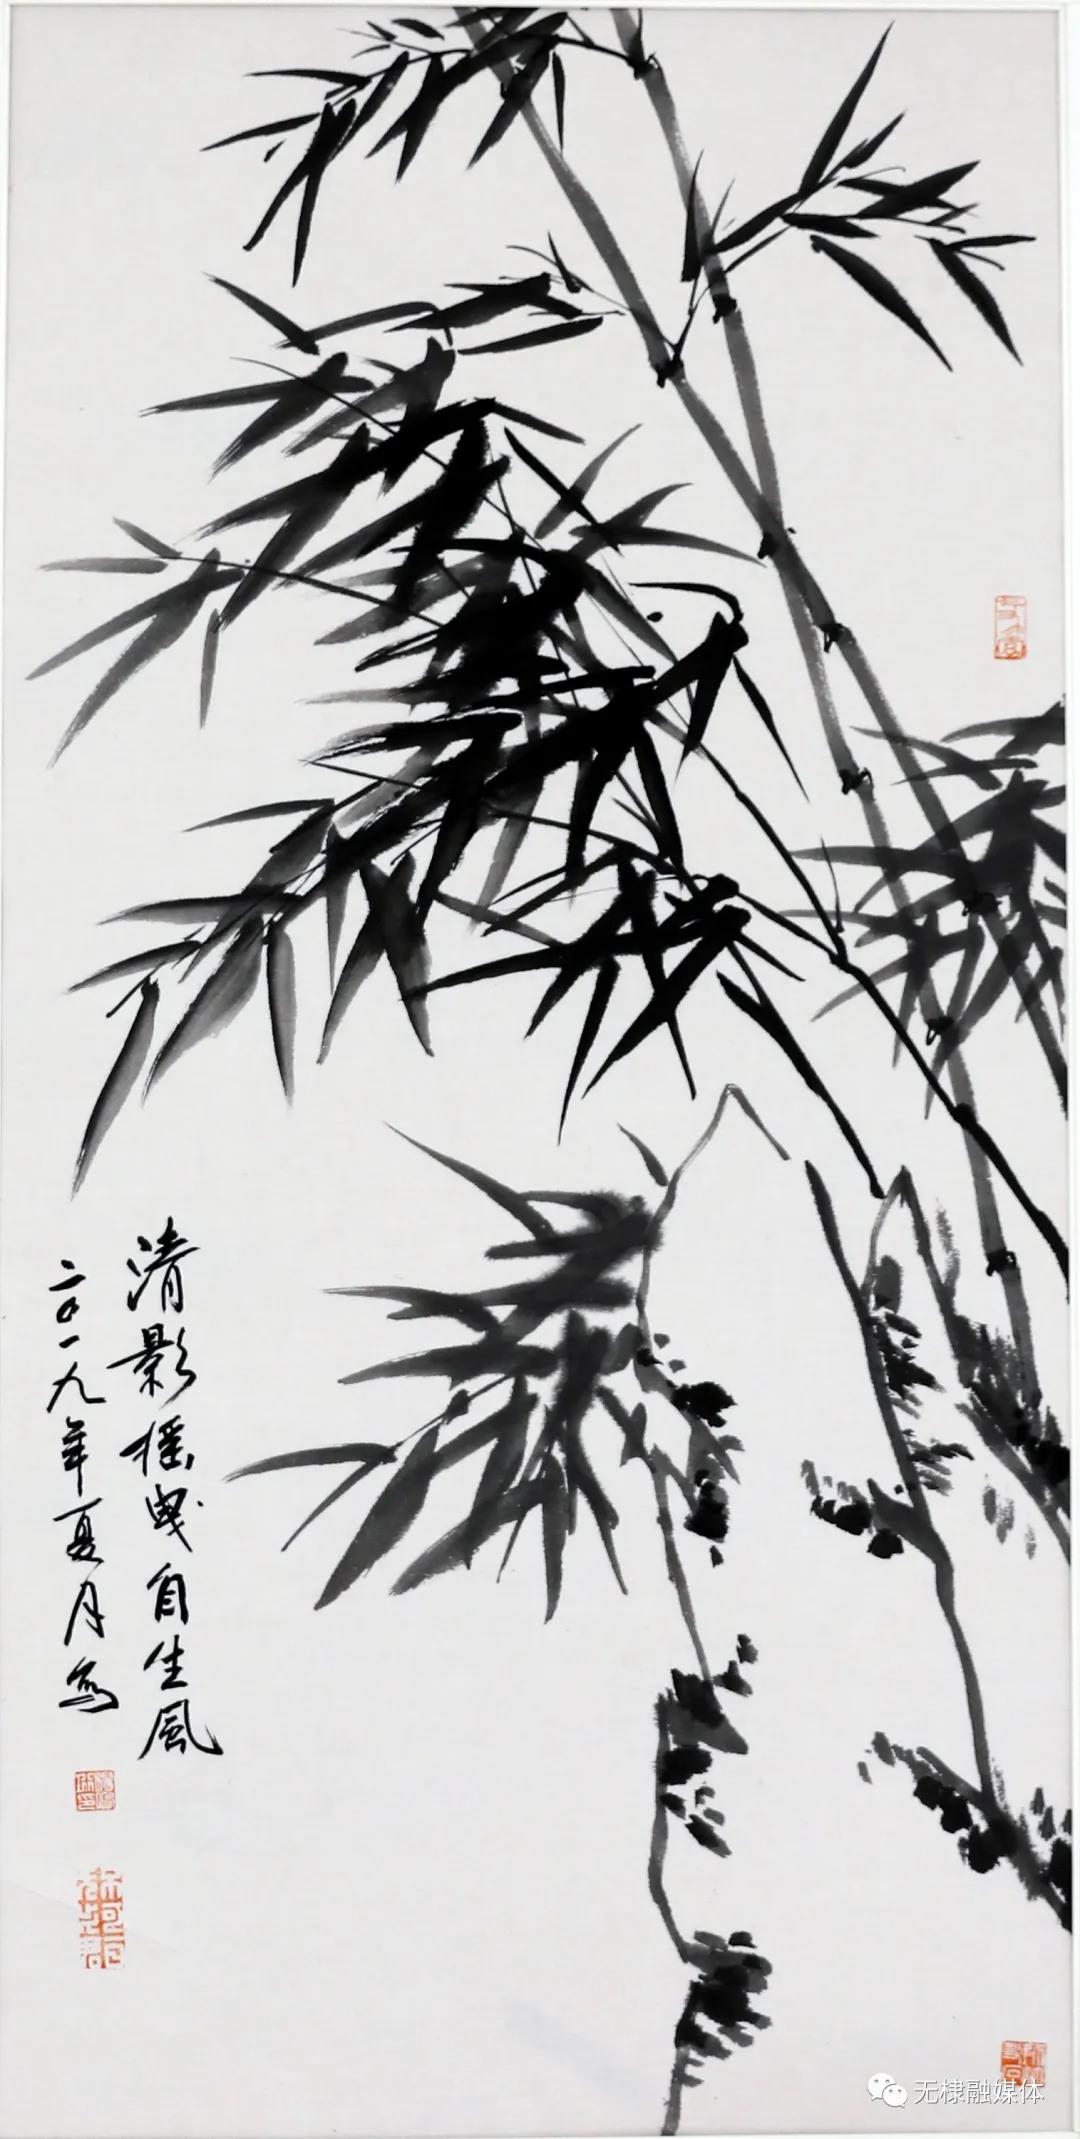 清影摇曳自生风
二〇一九年夏月写
无棣融媒体